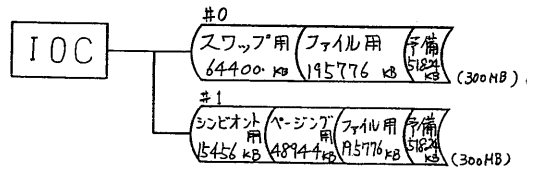 #0
IOC
スワップ用
64400. KB
ファイル用
195776 KB
予備
51824
KB
(300MB)
#1
シンビオント用
15456KB
ページング用
48944KB
ファイル用
195776KB
予備
51824
KB
(300MB)